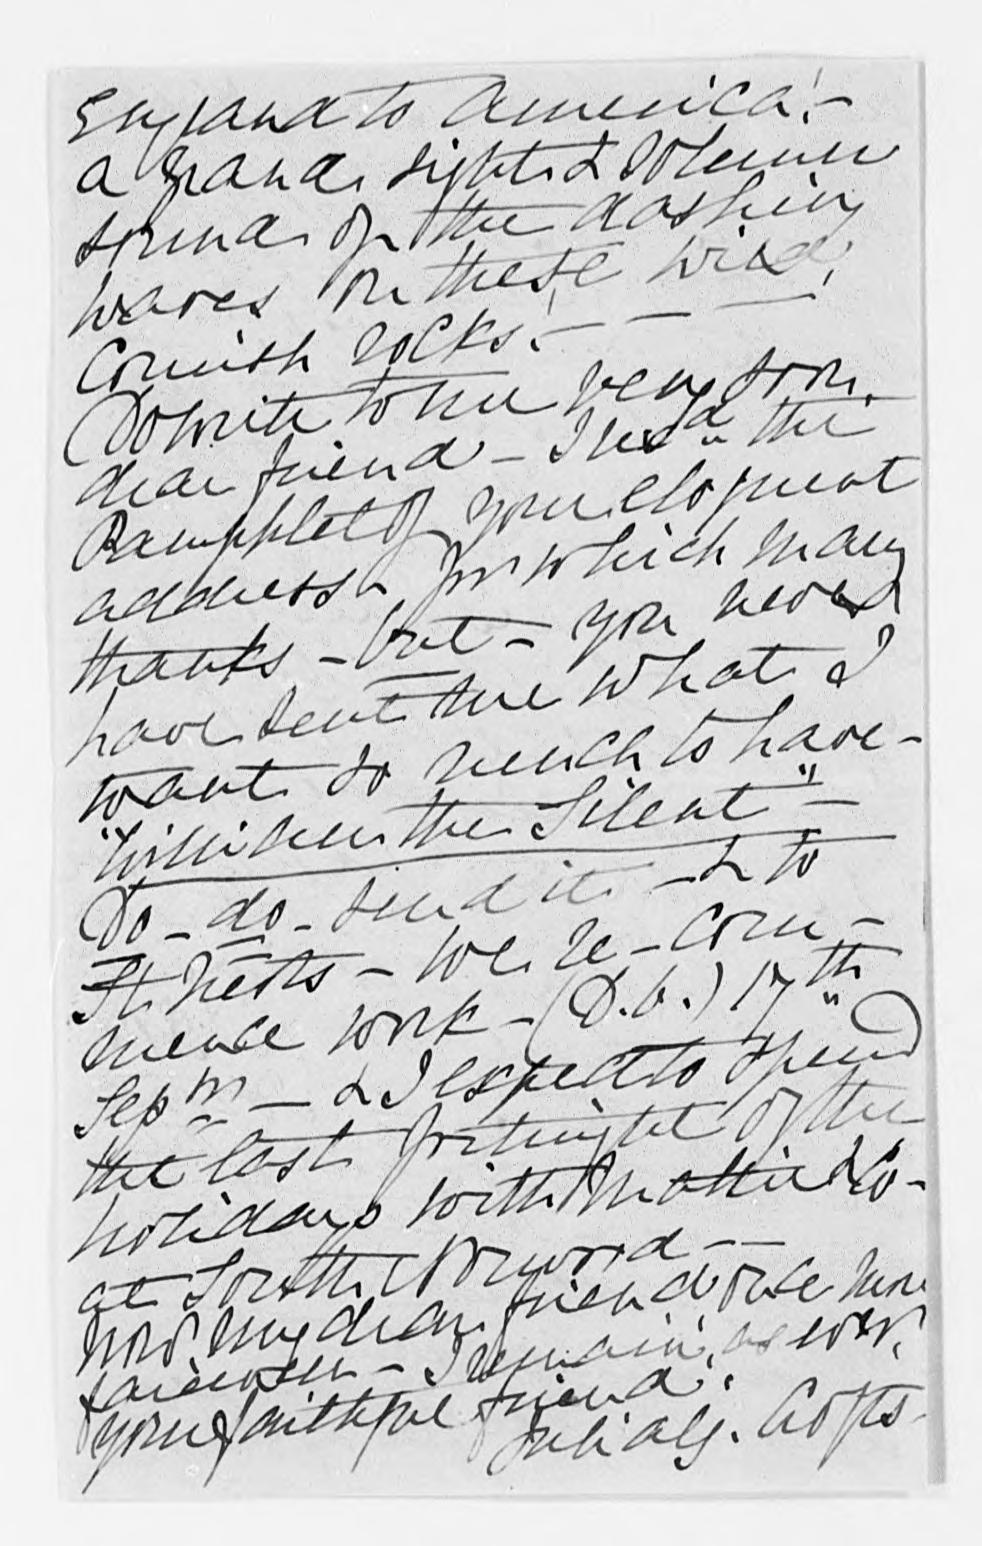 England to America! -
a grand sight & solemn
sound of the dashing
waves on these wild,
Cornish rocks! - - -
Do write to me very soon,
dear friend - I recd the
Pamphlet of your eloquent
address - for which many
thanks - but - you never
have sent me what I
want so much to have -
"William the Silent" -
Do - do - send it - & to
St. Neots - We re-com-
mence work - (D.V.) 17th
Sepm - & I expect to spend
the last fortnight of the
holidays with Mattie & Co -
at South Norwood - -
Now my dear friend once more
farewell - I remain, as ever,
your faithful friend,
Julia G. Crofts -